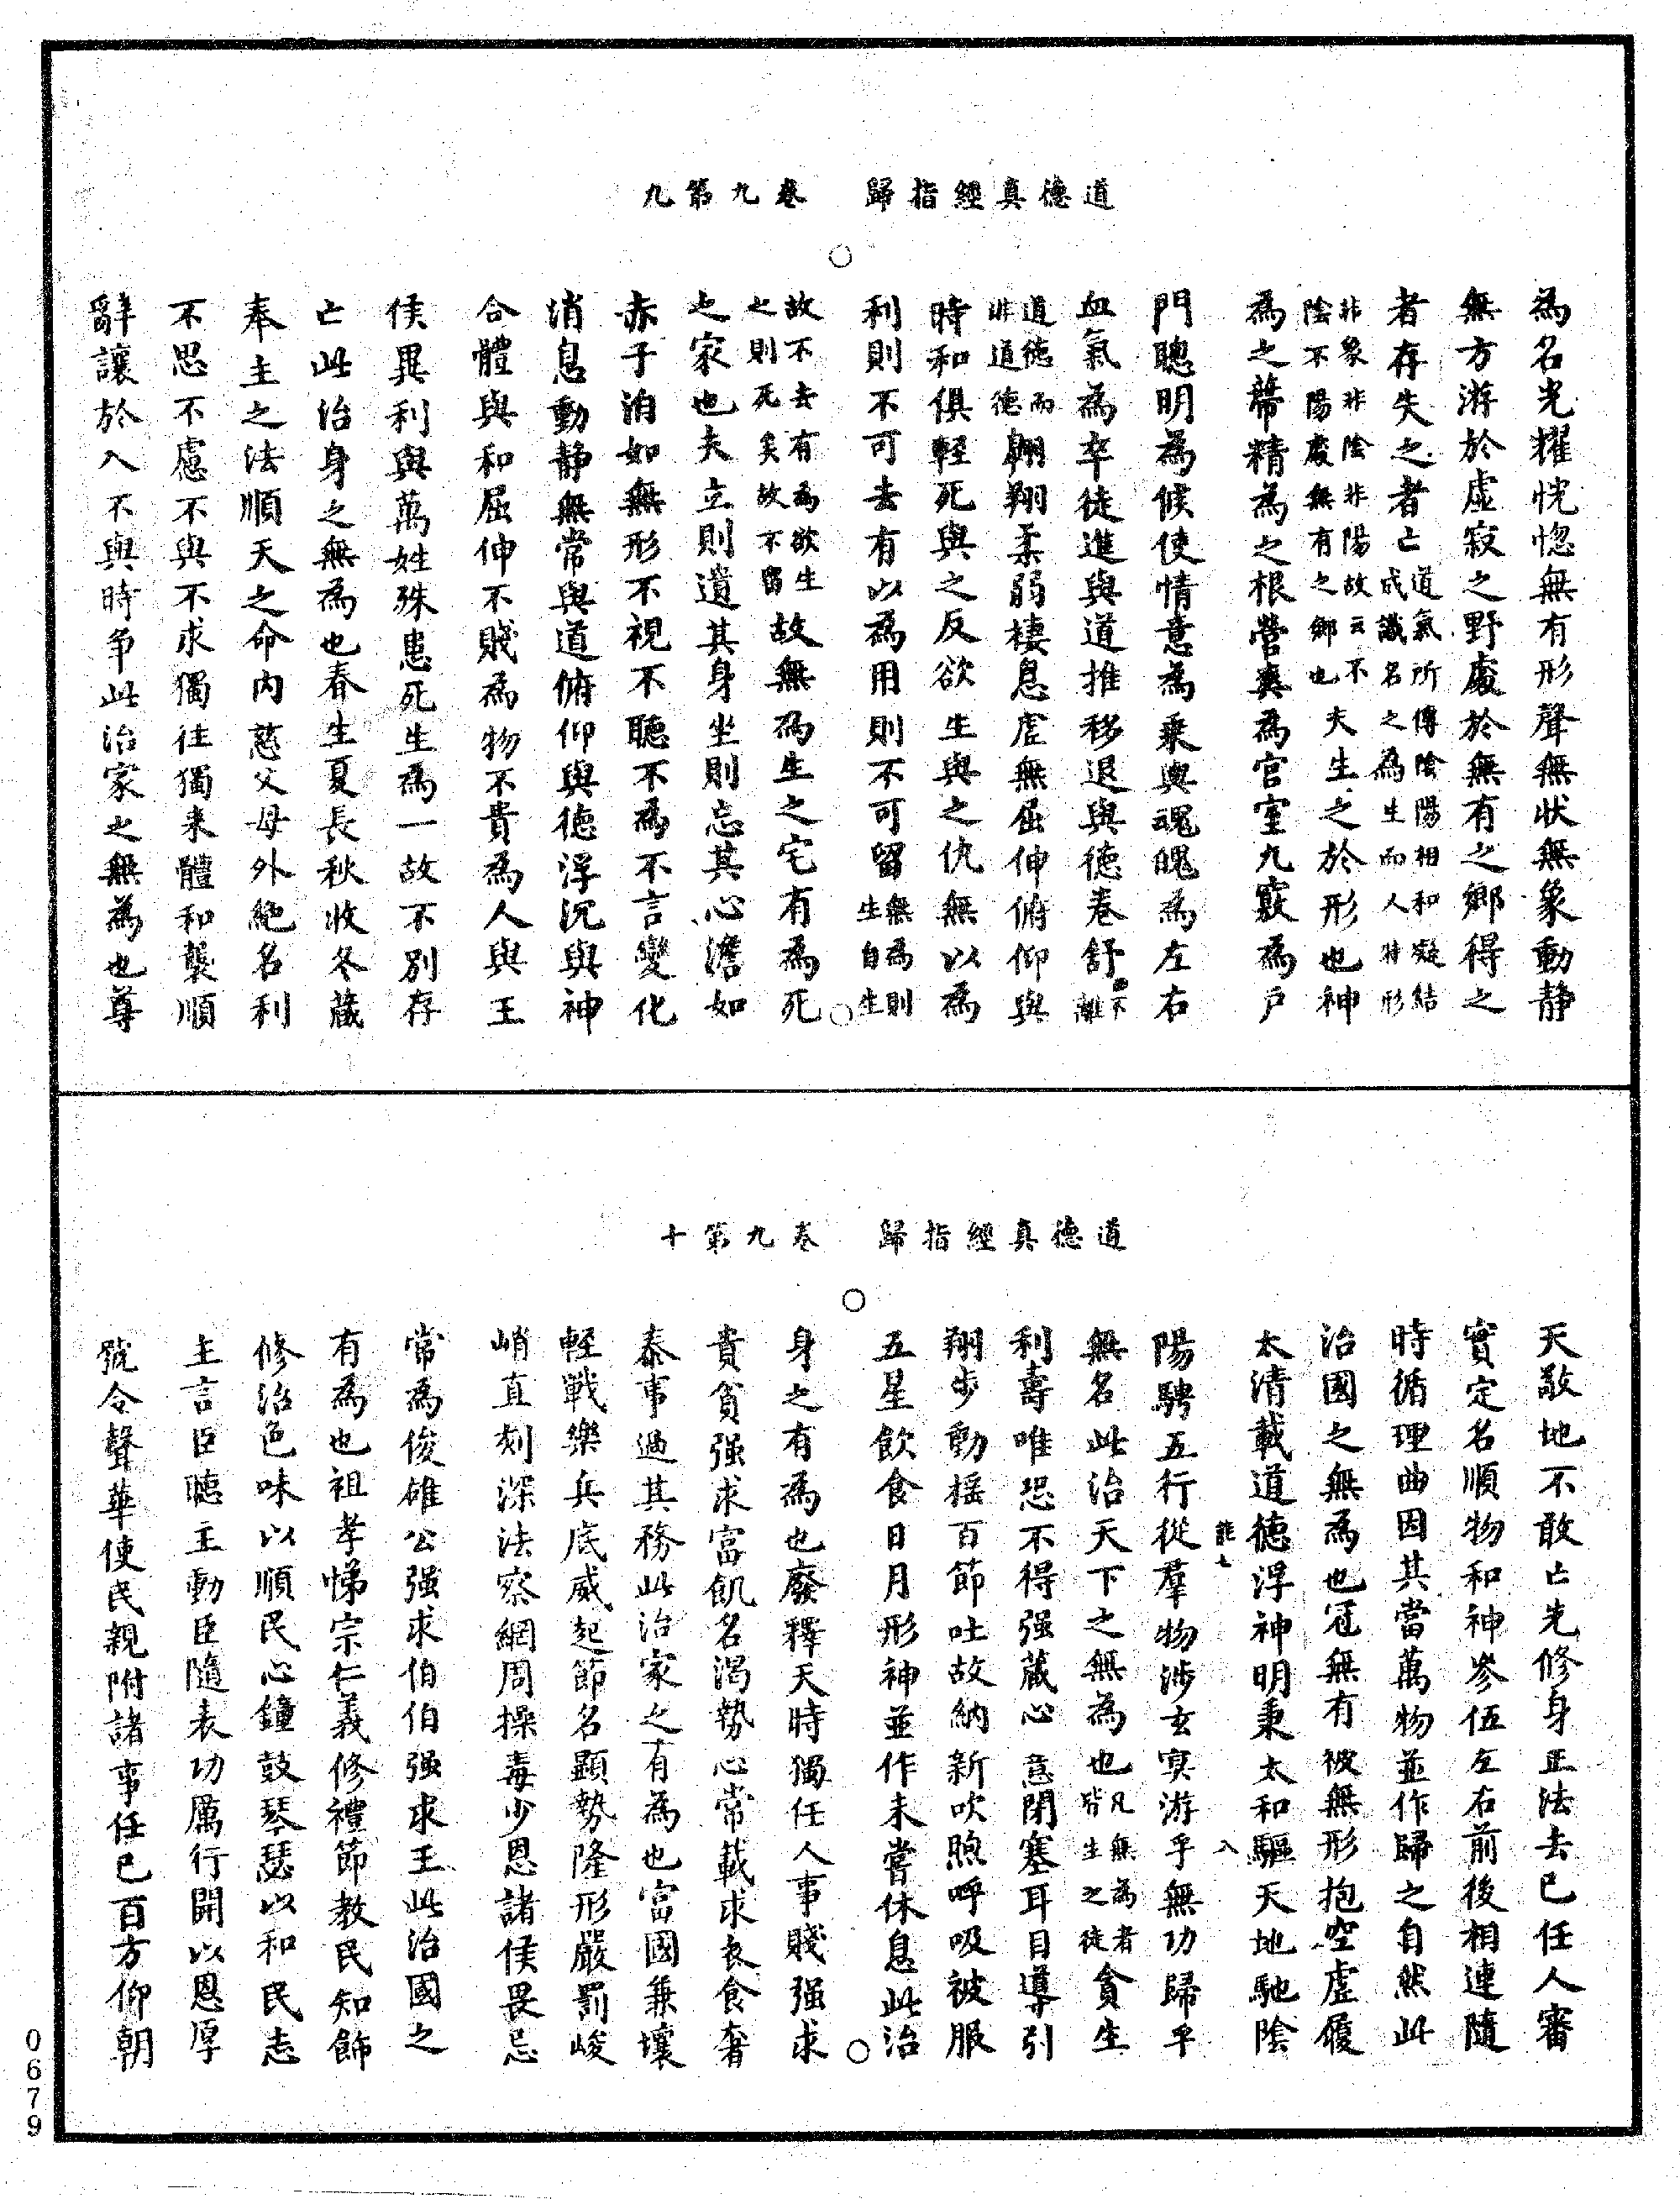 道德真經指歸　卷九第九
為名光耀恍惚無有形聲無狀無象動静
無方游於虛寂之野處於無有之鄉得之
者存失之者亡道氣所傳陰陽相和凝結成識名之為生而人特形
非象非陰非陽故云不陰不陽處無有之鄉也夫生之於形也神
為之蔕精為之根營爽為宮室九竅為戶
門聰明為候使情意為乗輿魂魄為左右
血氣為卒徒進與道推移退與德卷舒不離
道德而非道德翱翔柔弱棲息虛無屈伸俯仰與
時和俱輕死與之反欲生與之仇無以為
利則不可去有以為用則不可留無為則生自生
故不去有為欲生之則死矣故不留故無為生之宅有為死
之家也夫立則遺其身坐則忘其心澹如
赤子泊如無形不視不聽不為不言變化
消息動静無常與道俯仰與德浮沉與神
合體與和屈伸不賤為物不貴為人與王
侯異利與萬姓殊患死生為一故不別存
亡此治身之無為也春生夏長秋收冬藏
奉主之法順天之命內慈父母外絶名利
不思不慮不與不求獨往獨来體和襲順
辭讓於人不與時争此治家之無為也尊
道德真經指歸　卷九第十
天敬地不敢亡先修身正法去已任人審
實定名順物和神參伍左右前後相連隨
時循理曲因其當萬物並作歸之自然此
治國之無為也冠無有被無形抱空虛履
太清載道德浮神明秉太和驅天地馳陰
能七　八
陽騁五行從羣物涉玄冥游乎無功歸乎
無名此治天下之無為也凡無為者皆生之徒貪生
利壽唯恐不得强藏心意閉塞耳目導引
翔步動摇百節吐故納新吹煦呼吸被服
五星飲食日月形神並作未嘗休息此治
身之有為也廢釋天時獨任人事賤强求
貴貧强求富飢名渴勢心常載求衣食奢
泰事過其務此治家之有為也富國兼壤
輕戰樂兵底威起節名顯勢隆形嚴罰峻
峭直刻深法察網周操毒少恩諸侯畏忌
常為俊雄公强求伯伯强求王此治國之
有為也祖孝悌宗仁義修禮節教民知飾
修治色味以順民心鐘鼓琴瑟以和民志
主言臣聽主動臣隨表功厲行開以恩厚
號令聲華使民親附諸事任已百方仰朝
0679